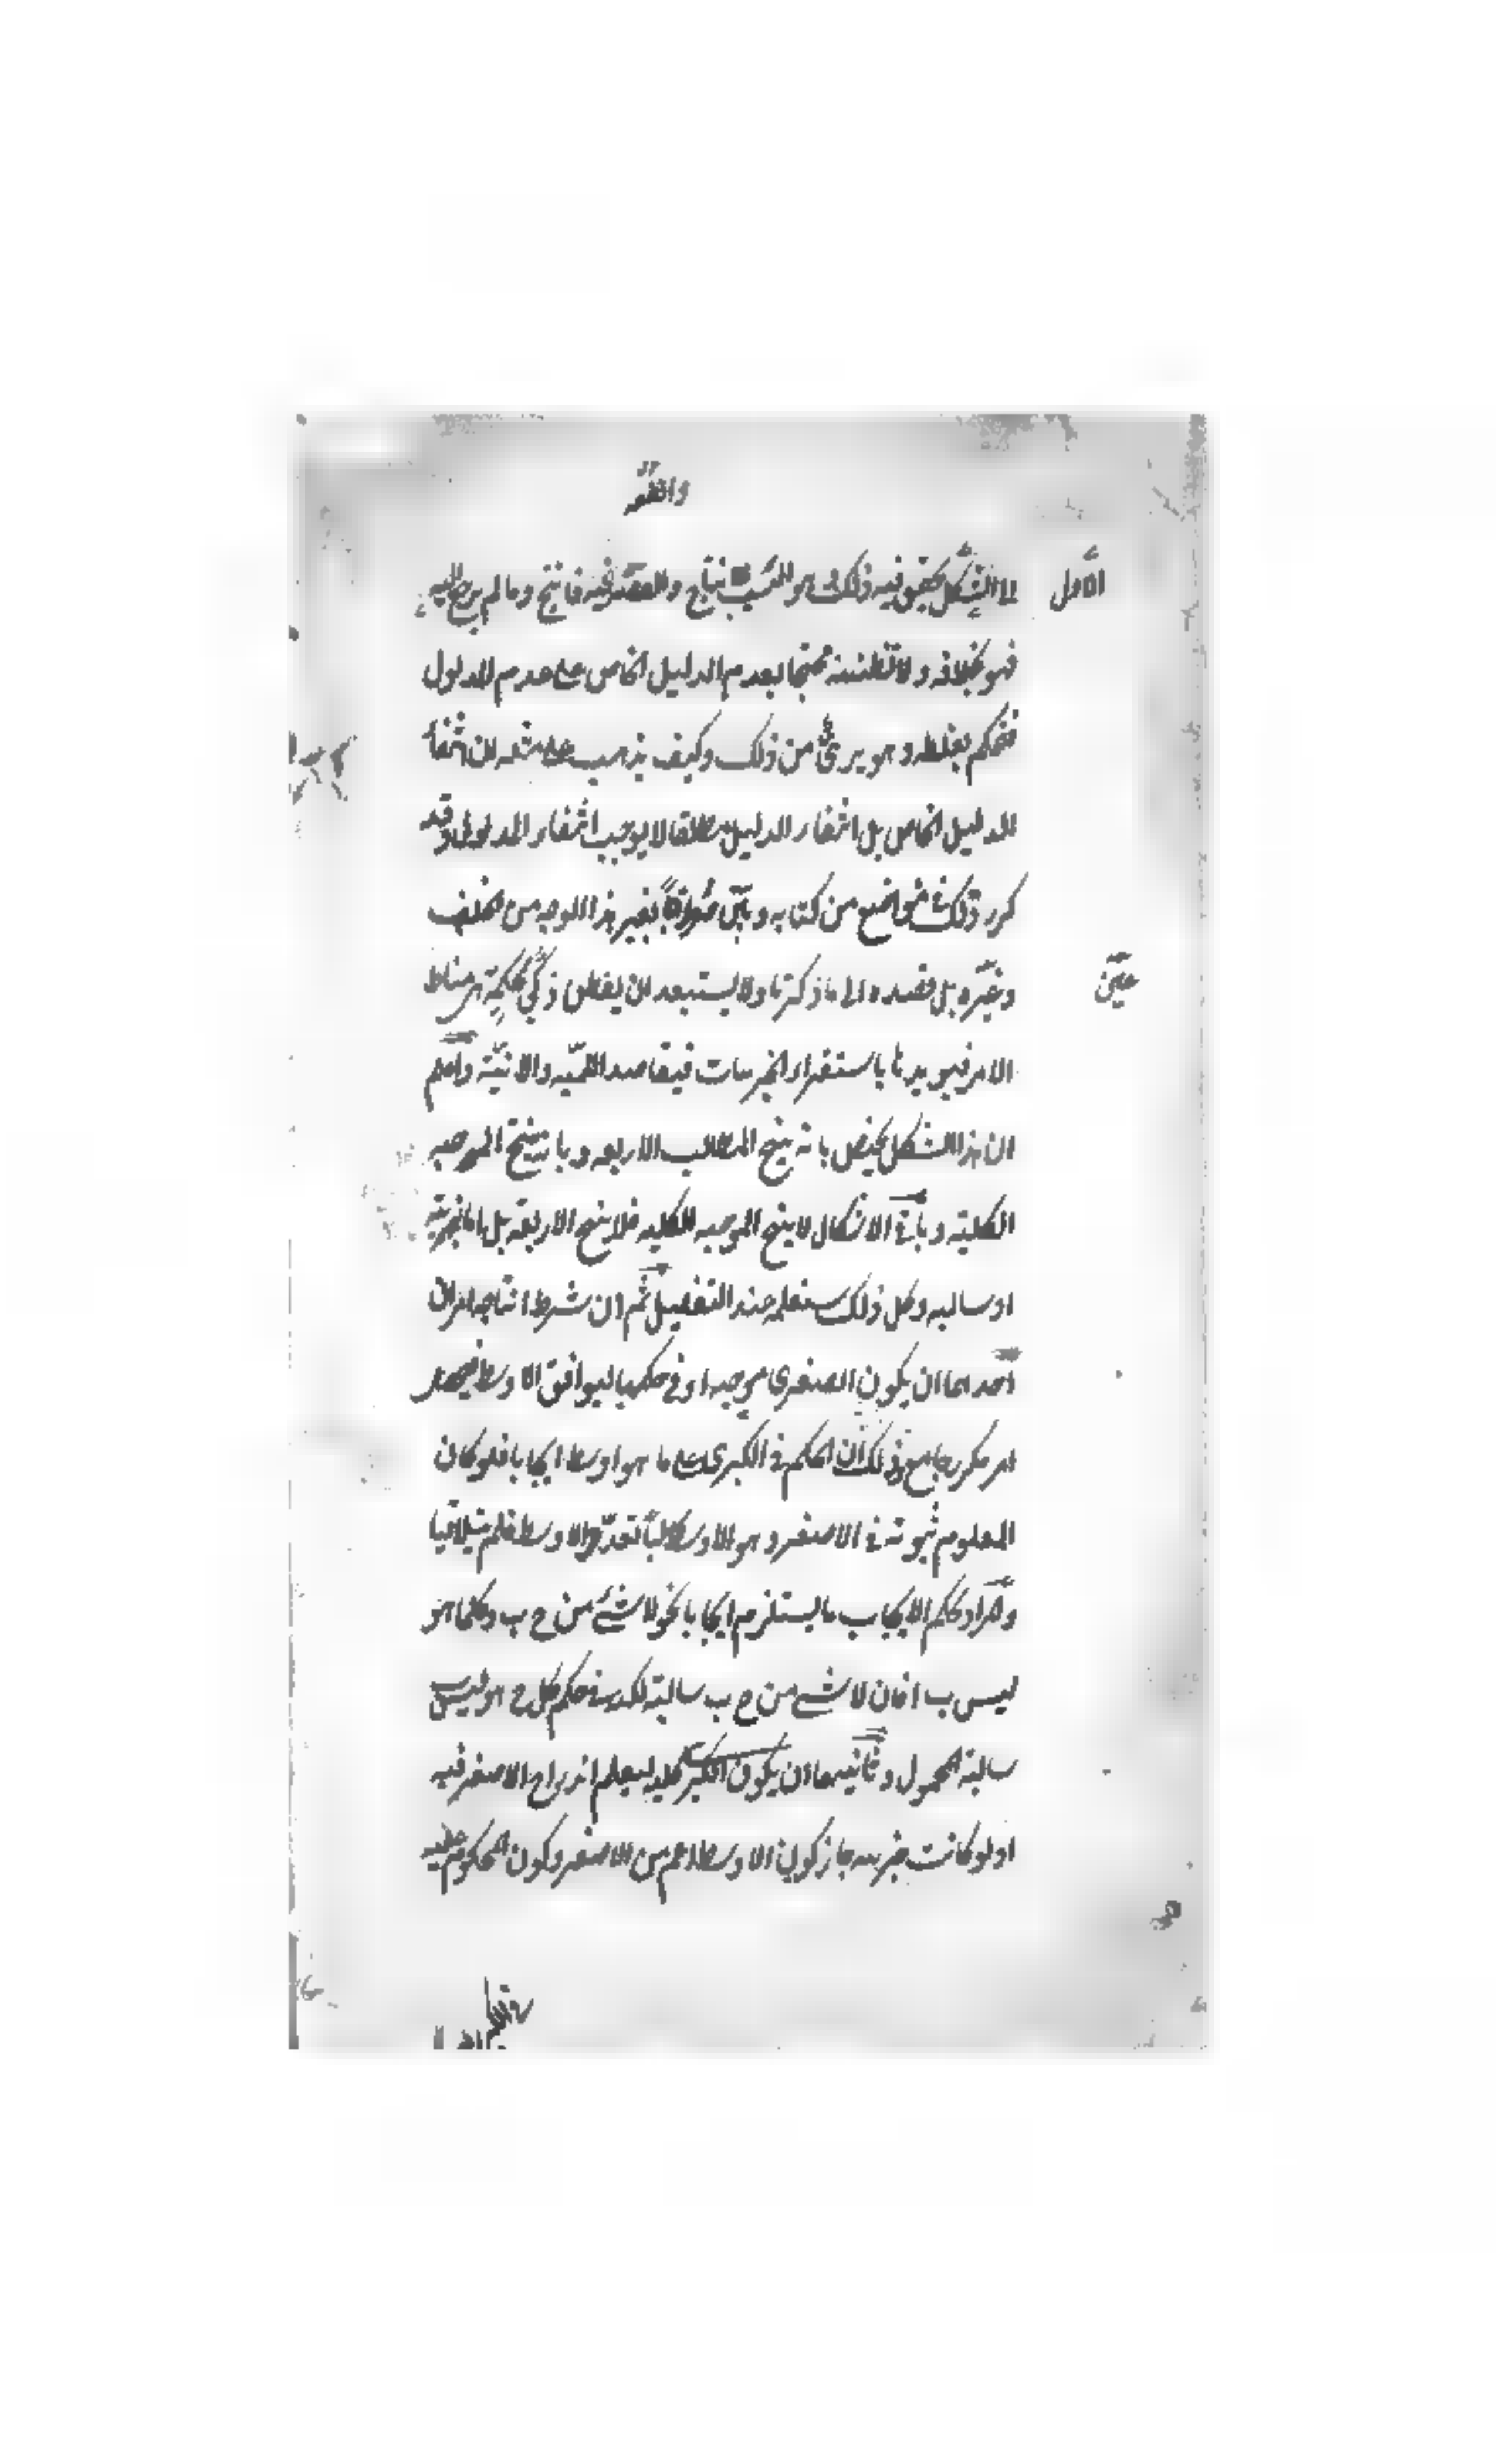 الاول
لا الشكل يحقق فيه ذلك هو السبب انتاج والعقد فيه فانتج وما لم يرجع اليه
فهو بخلافه ولا تظننه محتجا بعدم الدليل الخاص على عدم المدلول
فتحكم بغلطه وهو برئ من ذلك وكيف يذهب على مثله ان انتفاء
الدليل الخاص بل انتفاء الدليل مطلقا لا يوجب انتفاء المدلول وقد
كرر ذلك في مواضع من كتابه وبين بغير هذا الوجه من الخلف
وغيره بل قصده الى ما ذكرنا ولا يستبعد ان يفطن ذكي مناط
الامر فيؤيدنا باستقراء الجزئيات فيقاصد اللمية والانية واعلم
ان هذا الشكل يختص بانه ينتج المطالب الاربعه وبانه ينتج الموجبه
الكلية وباقي الاشكال لا ينتج الموجبه الكليه فلا ينتج الاربعة بل اما جزئية
او سالبه وكل ذلك ستعلمه عند التفصيل ثم ان شرط انتاجه امران
احدهما ان يكون الصغرى موجبه او في حكمها ليوافق الاوسط فيحصل
امر مكرر جامع وذلك ان الحكم في الكبرى على ما هو اوسط ايجابا فلو كان
المعلوم ثبوته في الاصغر وهو الاوسط سلبا تعدد الاوسط فلم يتلاقيا
والمراد بحكم الايجاب ما يستلزم ايجابا نحو لا شئ من ج ب وكلما هو
ليس ب ا فان لا شئ من ج ب سالبة لكنه في حكم كل ج هو ليس ب
سالبة المحمول وثانيهما ان يكون الكبرى كليه ليعلم اندراج الاصغر فيه
اذ لو كانت جزئيه جاز كون الاوسط اعم من الاصغر وكون المحكوم عليه